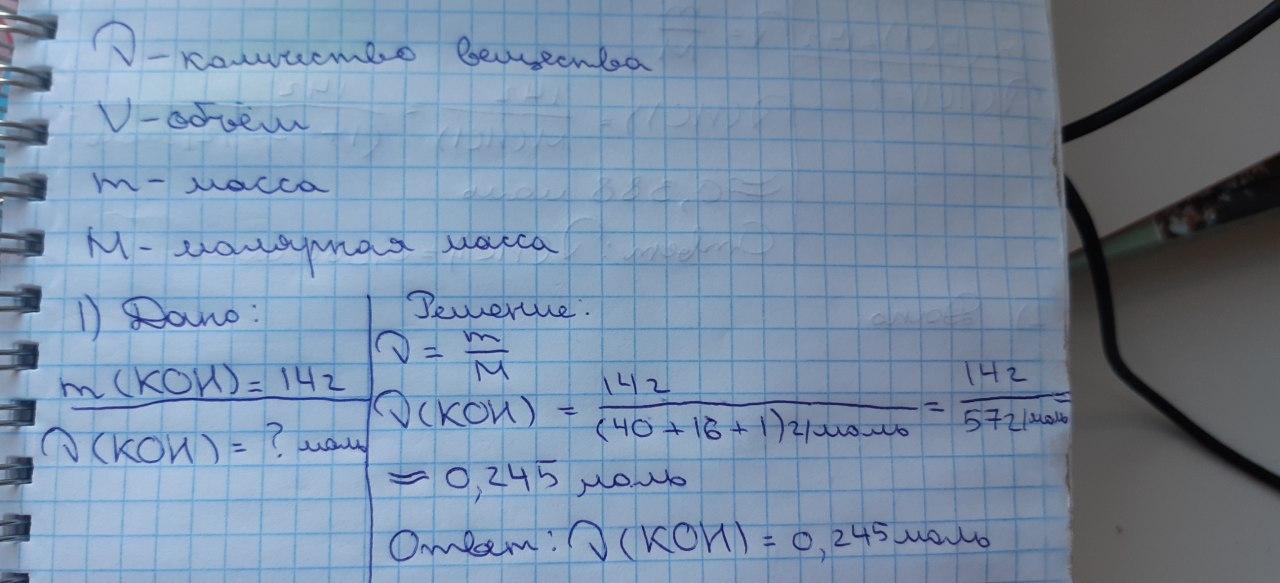 ν - количество вещества
V - объём
m - масса
M - молярная масса
1) Дано:
m (KOH) = 14 г
ν (KOH) = ? моль
Решение:
ν = m/M
ν (KOH) = 14 г/(40 + 16 + 1) г/моль = 14 г/57 г/моль =
= 0,245 моль
Ответ: ν (KOH) = 0,245 моль